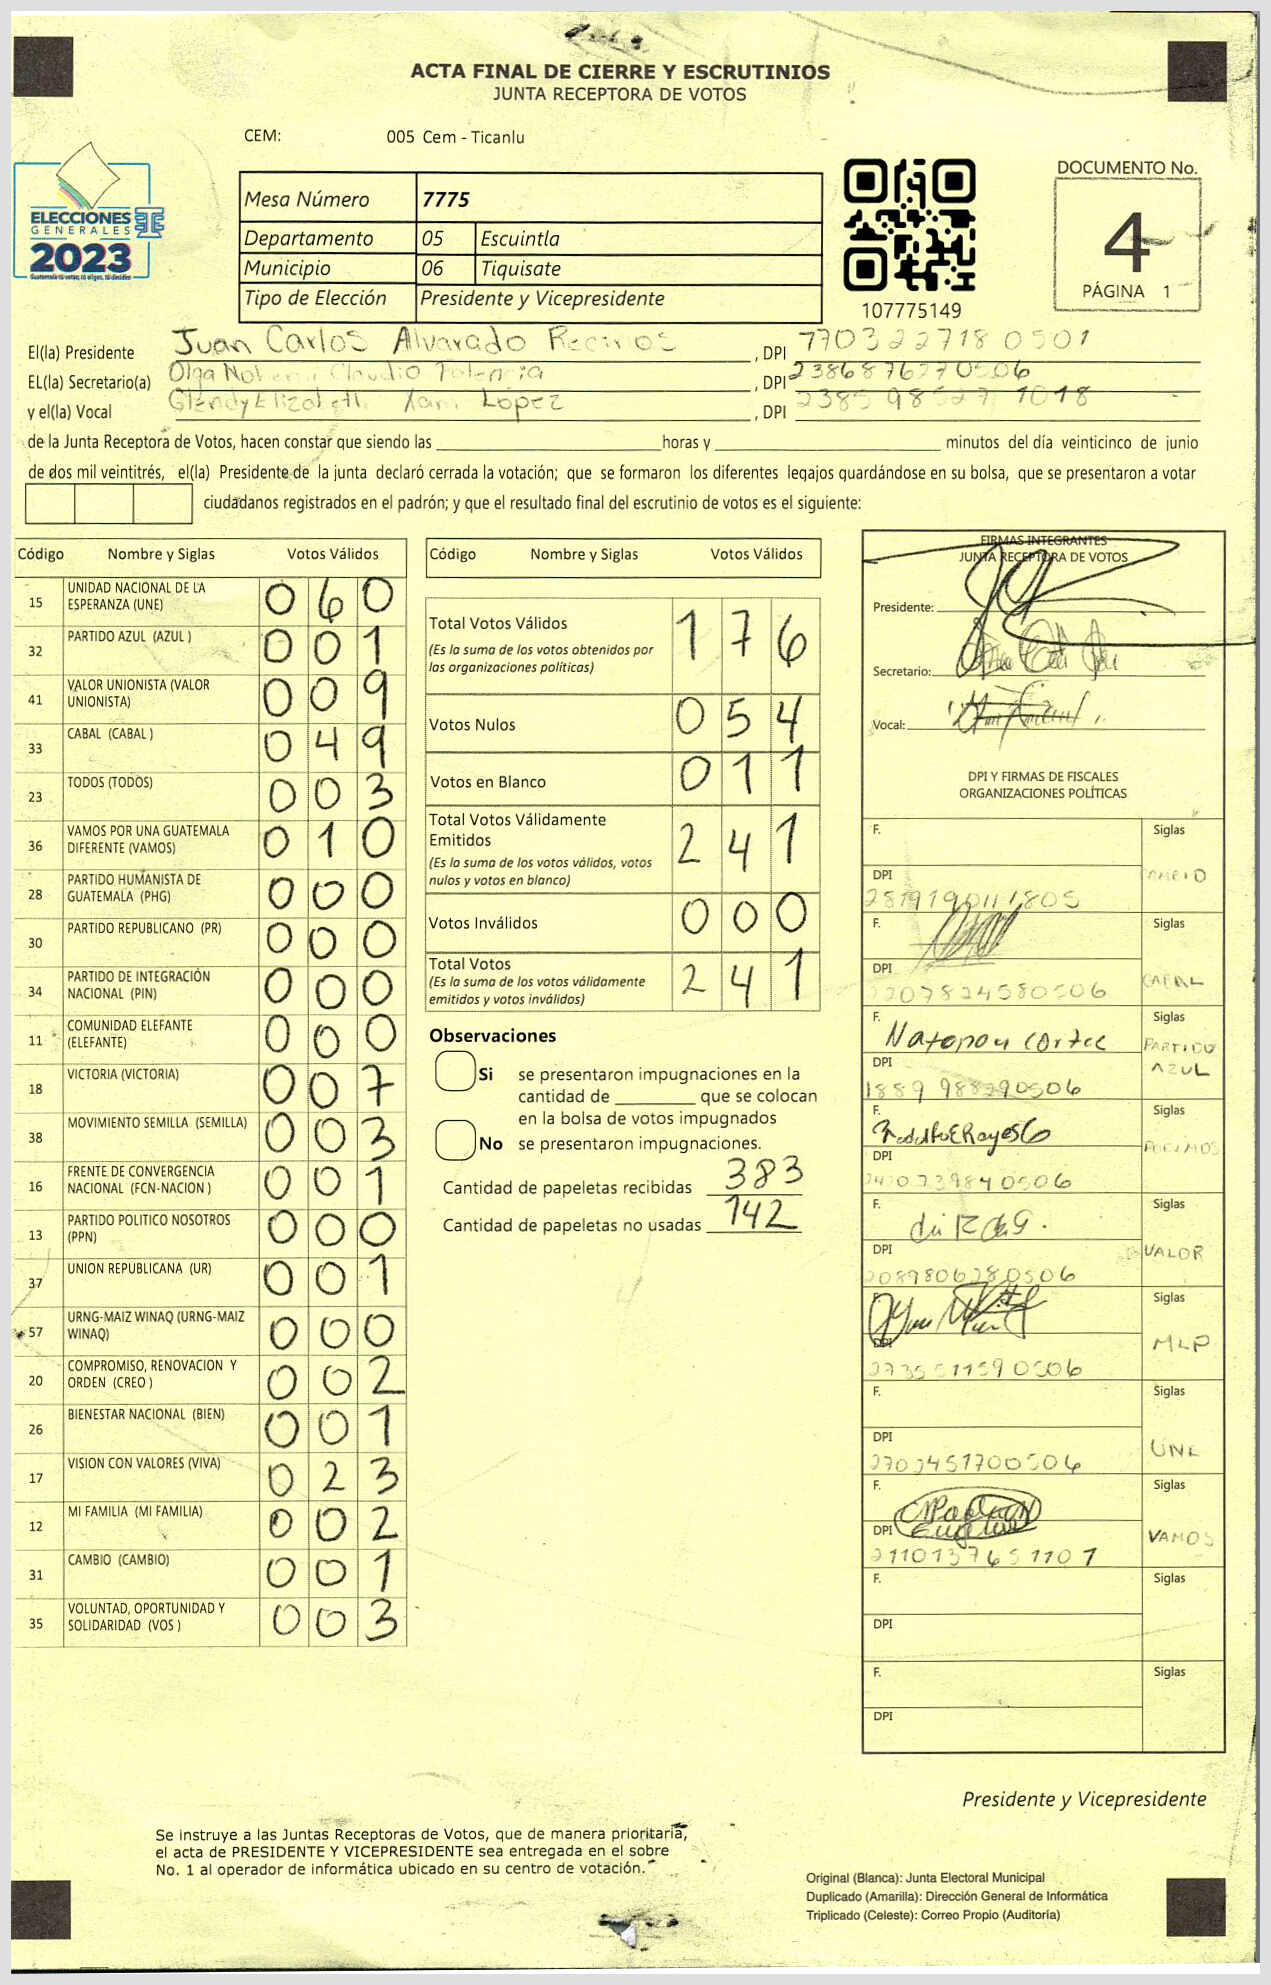 ACTA FINAL DE CIERRE Y ESCRUTINIOS
JUNTA RECEPTORA DE VOTOS
CEM: 005 Cem - Ticanlu
ELECCIONES
GENERALES
2023
Mesa Número 7775
Departamento 05 Escuintla
Municipio 06 Tiquisate
Tipo de Elección Presidente y Vicepresidente
107775149
DOCUMENTO No.
4
PÁGINA 1
El(la) Presidente Juan Carlos Alvarado Recinos , DPI 7703227180501
EL(la) Secretario(a) Olga Claudio , DPI 2386876270506
y el(la) Vocal Glendy Elizabeth López , DPI
de la Junta Receptora de Votos, hacen constar que siendo las horas y minutos del día veinticinco de junio
de dos mil veintitrés, el(la) Presidente de la junta declaró cerrada la votación; que se formaron los diferentes legajos quardándose en su bolsa, que se presentaron a votar
ciudadanos registrados en el padrón; y que el resultado final del escrutinio de votos es el siguiente:
Código Nombre y Siglas Votos Válidos
15 UNIDAD NACIONAL DE LA ESPERANZA (UNE) 0 6 0
32 PARTIDO AZUL (AZUL ) 0 0 1
41 VALOR UNIONISTA (VALOR UNIONISTA) 0 0 9
33 CABAL (CABAL ) 0 4 9
23 TODOS (TODOS) 0 0 3
36 VAMOS POR UNA GUATEMALA DIFERENTE (VAMOS) 0 1 0
28 PARTIDO HUMANISTA DE GUATEMALA (PHG) 0 0 0
30 PARTIDO REPUBLICANO (PR) 0 0 0
34 PARTIDO DE INTEGRACIÓN NACIONAL (PIN) 0 0 0
11 COMUNIDAD ELEFANTE (ELEFANTE) 0 0 0
18 VICTORIA (VICTORIA) 0 0 7
38 MOVIMIENTO SEMILLA (SEMILLA) 0 0 3
16 FRENTE DE CONVERGENCIA NACIONAL (FCN-NACION ) 0 0 1
13 PARTIDO POLITICO NOSOTROS (PPN) 0 0 0
37 UNION REPUBLICANA (UR) 0 0 1
57 URNG-MAIZ WINAQ (URNG-MAIZ WINAQ) 0 0 0
20 COMPROMISO, RENOVACION Y ORDEN (CREO ) 0 0 2
26 BIENESTAR NACIONAL (BIEN) 0 0 1
17 VISION CON VALORES (VIVA) 0 2 3
12 MI FAMILIA (MI FAMILIA) 0 0 2
31 CAMBIO (CAMBIO) 0 0 1
35 VOLUNTAD, OPORTUNIDAD Y SOLIDARIDAD (VOS ) 0 0 3
Código Nombre y Siglas Votos Válidos
Total Votos Válidos 1 7 6
(Es la suma de los votos obtenidos por
las organizaciones políticas)
Votos Nulos 0 5 4
Votos en Blanco 0 1 1
Total Votos Válidamente
Emitidos 2 4 1
(Es la suma de los votos válidos, votos
nulos y votos en blanco)
Votos Inválidos 0 0 0
Total Votos 2 4 1
(Es la suma de los votos válidamente
emitidos y votos inválidos)
Observaciones
Si se presentaron impugnaciones en la
cantidad de que se colocan
en la bolsa de votos impugnados
No se presentaron impugnaciones.
Cantidad de papeletas recibidas 383
Cantidad de papeletas no usadas 142
FIRMAS INTEGRANTES
JUNTA RECEPTORA DE VOTOS
Presidente:
Secretario:
Vocal:
DPI Y FIRMAS DE FISCALES
ORGANIZACIONES POLÍTICAS
F. Siglas
DPI
F. Siglas
DPI CABAL
F. Siglas
PARTIDO
DPI AZUL
F. Siglas
DPI
F. Siglas
DPI VALOR
2089806280506
F. Siglas
DPI MLP
F. Siglas
DPI UNE
F. Siglas
DPI VAMOS
2110137651101
F. Siglas
DPI
F. Siglas
DPI
Presidente y Vicepresidente
Se instruye a las Juntas Receptoras de Votos, que de manera prioritaria,
el acta de PRESIDENTE Y VICEPRESIDENTE sea entregada en el sobre
No. 1 al operador de informática ubicado en su centro de votación.
Original (Blanca): Junta Electoral Municipal
Duplicado (Amarilla): Dirección General de Informática
Triplicado (Celeste): Correo Propio (Auditoría)